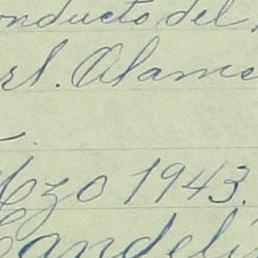 onducto del
rl. Alame
Mzo 1943.
Candeli